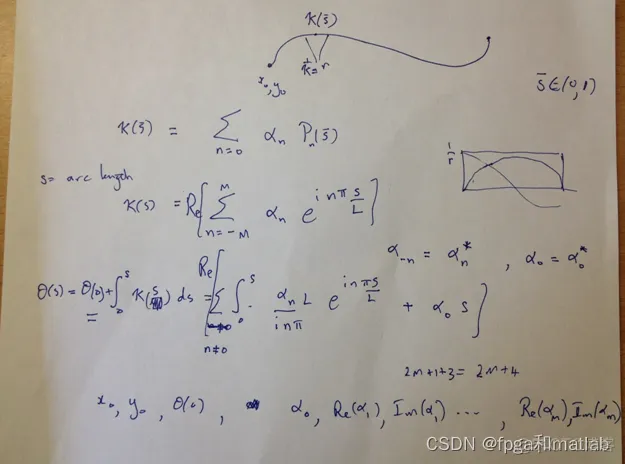 K(s̄)
1/K = r
x₀, y₀
s̄ ∈ (0, 1)
K(s̄) = ∑ n=0 αₙ Pₙ(s̄)
1/r
s = arc length
K(s) = Re[ ∑ n=-M M αₙ e^{i n π s/L} ]
α₋ₙ = αₙ* , α₀ = α₀*
θ(s) = θ(0) + ∫₀ˢ K(s) ds = Re[ ∑ n≠0 ∫₀ˢ αₙ L / i n π e^{i n π s/L} + α₀ s ]
2M+1+3 = 2M+4
x₀, y₀, θ(0), α₀, Re(α₁), Im(α₁) ..., Re(αₘ), Im(αₘ)
CSDN @fpga和matlab